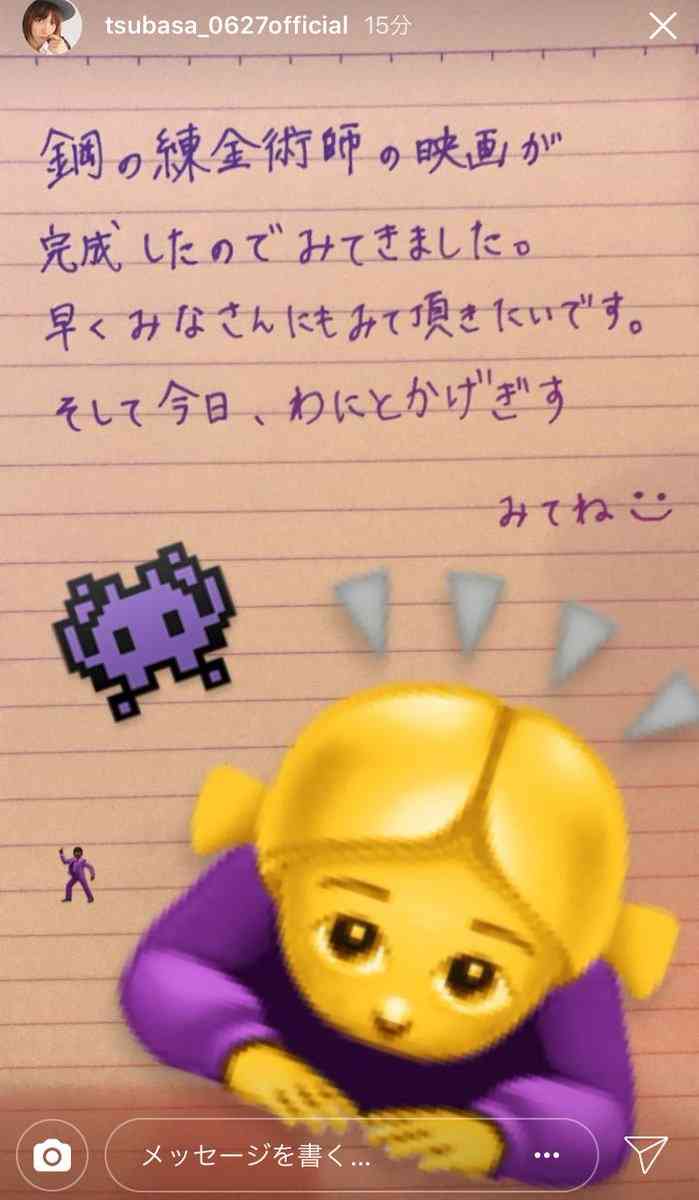 tsubasa_0627official 15分
鋼の練金術師の映画が
完成したのでみてきました。
早くみなさんにもみて頂きたいです。
そして今日、わにとかげぎす
みてね
メッセージを書く...